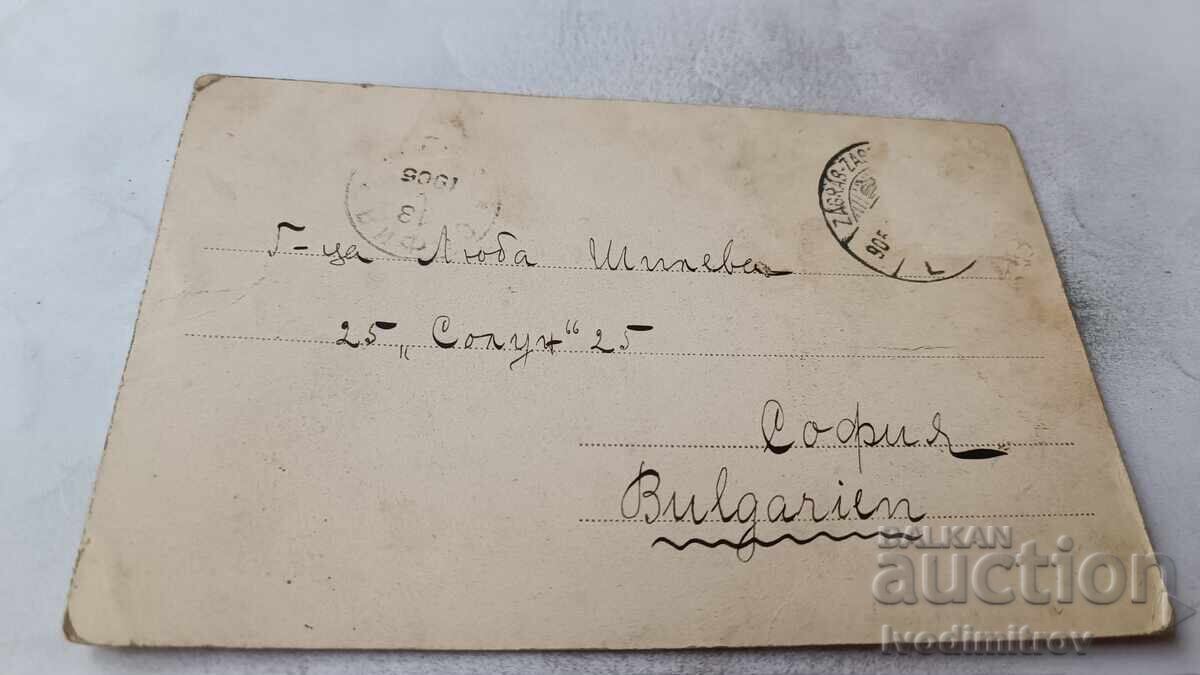 1905
13
ZÁGRÁB-ZÁG
905
Г-ца Люба Шилева
25 „Солун“ 25
София
Bulgarien
BALKAN
auction
Ivodimitrov